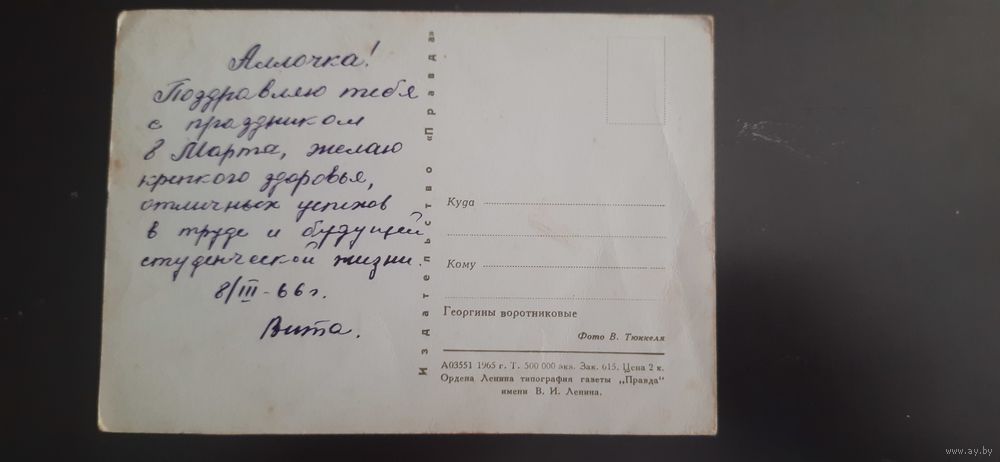 Аллочка!
Поздравляю тебя
с праздником
8 Марта, желаю
крепкого здоровья,
отличных успехов
в труде и будущей
студенческой жизни.
8/III-66г.
Вита.
Издательство «Правда»
Куда
Кому
Георгины воротниковые
Фото В. Тюккеля
А03551 1965 г. Т. 500 000 экз. Зак. 615. Цена 2 к.
Ордена Ленина типография газеты „Правда“
имени В. И. Ленина.
www.ay.by